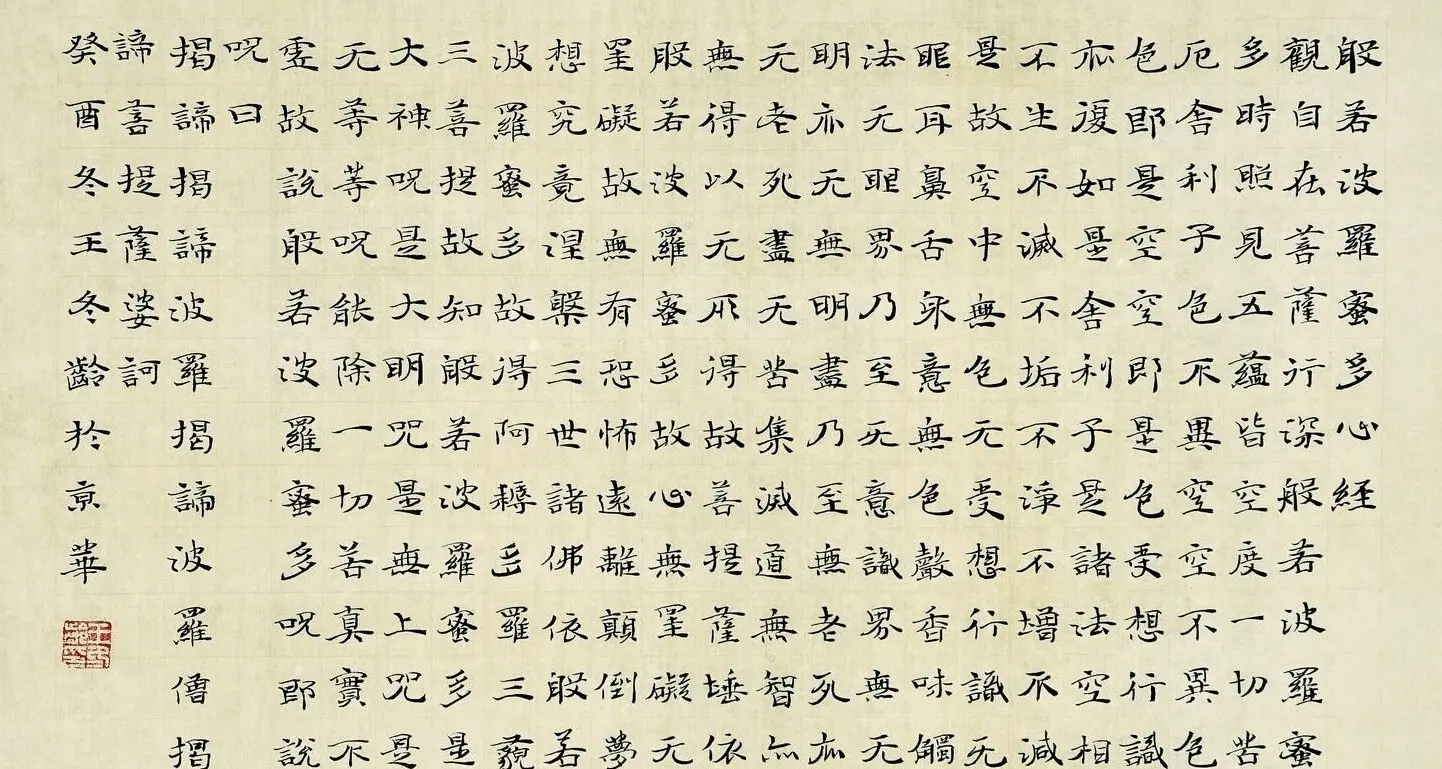 般若波羅蜜多心経
觀自在菩薩行深般若波羅蜜
多時照見五蘊皆空度一切苦
厄舍利子色不異空空不異色
色即是空空即是色受想行識
亦復如是舍利子是諸法空相
不生不滅不垢不淨不增不減
是故空中無色无受想行識无
眼耳鼻舌身意無色聲香味觸
法无眼界乃至无意識界無无
明亦无無明盡乃至無老死亦
无老死盡无苦集滅道無智亦
無得以无所得故菩提薩埵依
般若波羅蜜多故心無罣礙无
罣礙故無有恐怖遠離顛倒夢
想究竟涅槃三世諸佛依般若
波羅蜜多故得阿耨多羅三藐
三菩提故知般若波羅蜜多是
大神咒是大明咒是無上咒是
无等等咒能除一切苦真實不
虛故說般若波羅蜜多咒即說
咒曰
揭諦揭諦波羅揭諦波羅僧揭
諦菩提薩婆訶
癸酉冬王冬齡於京華